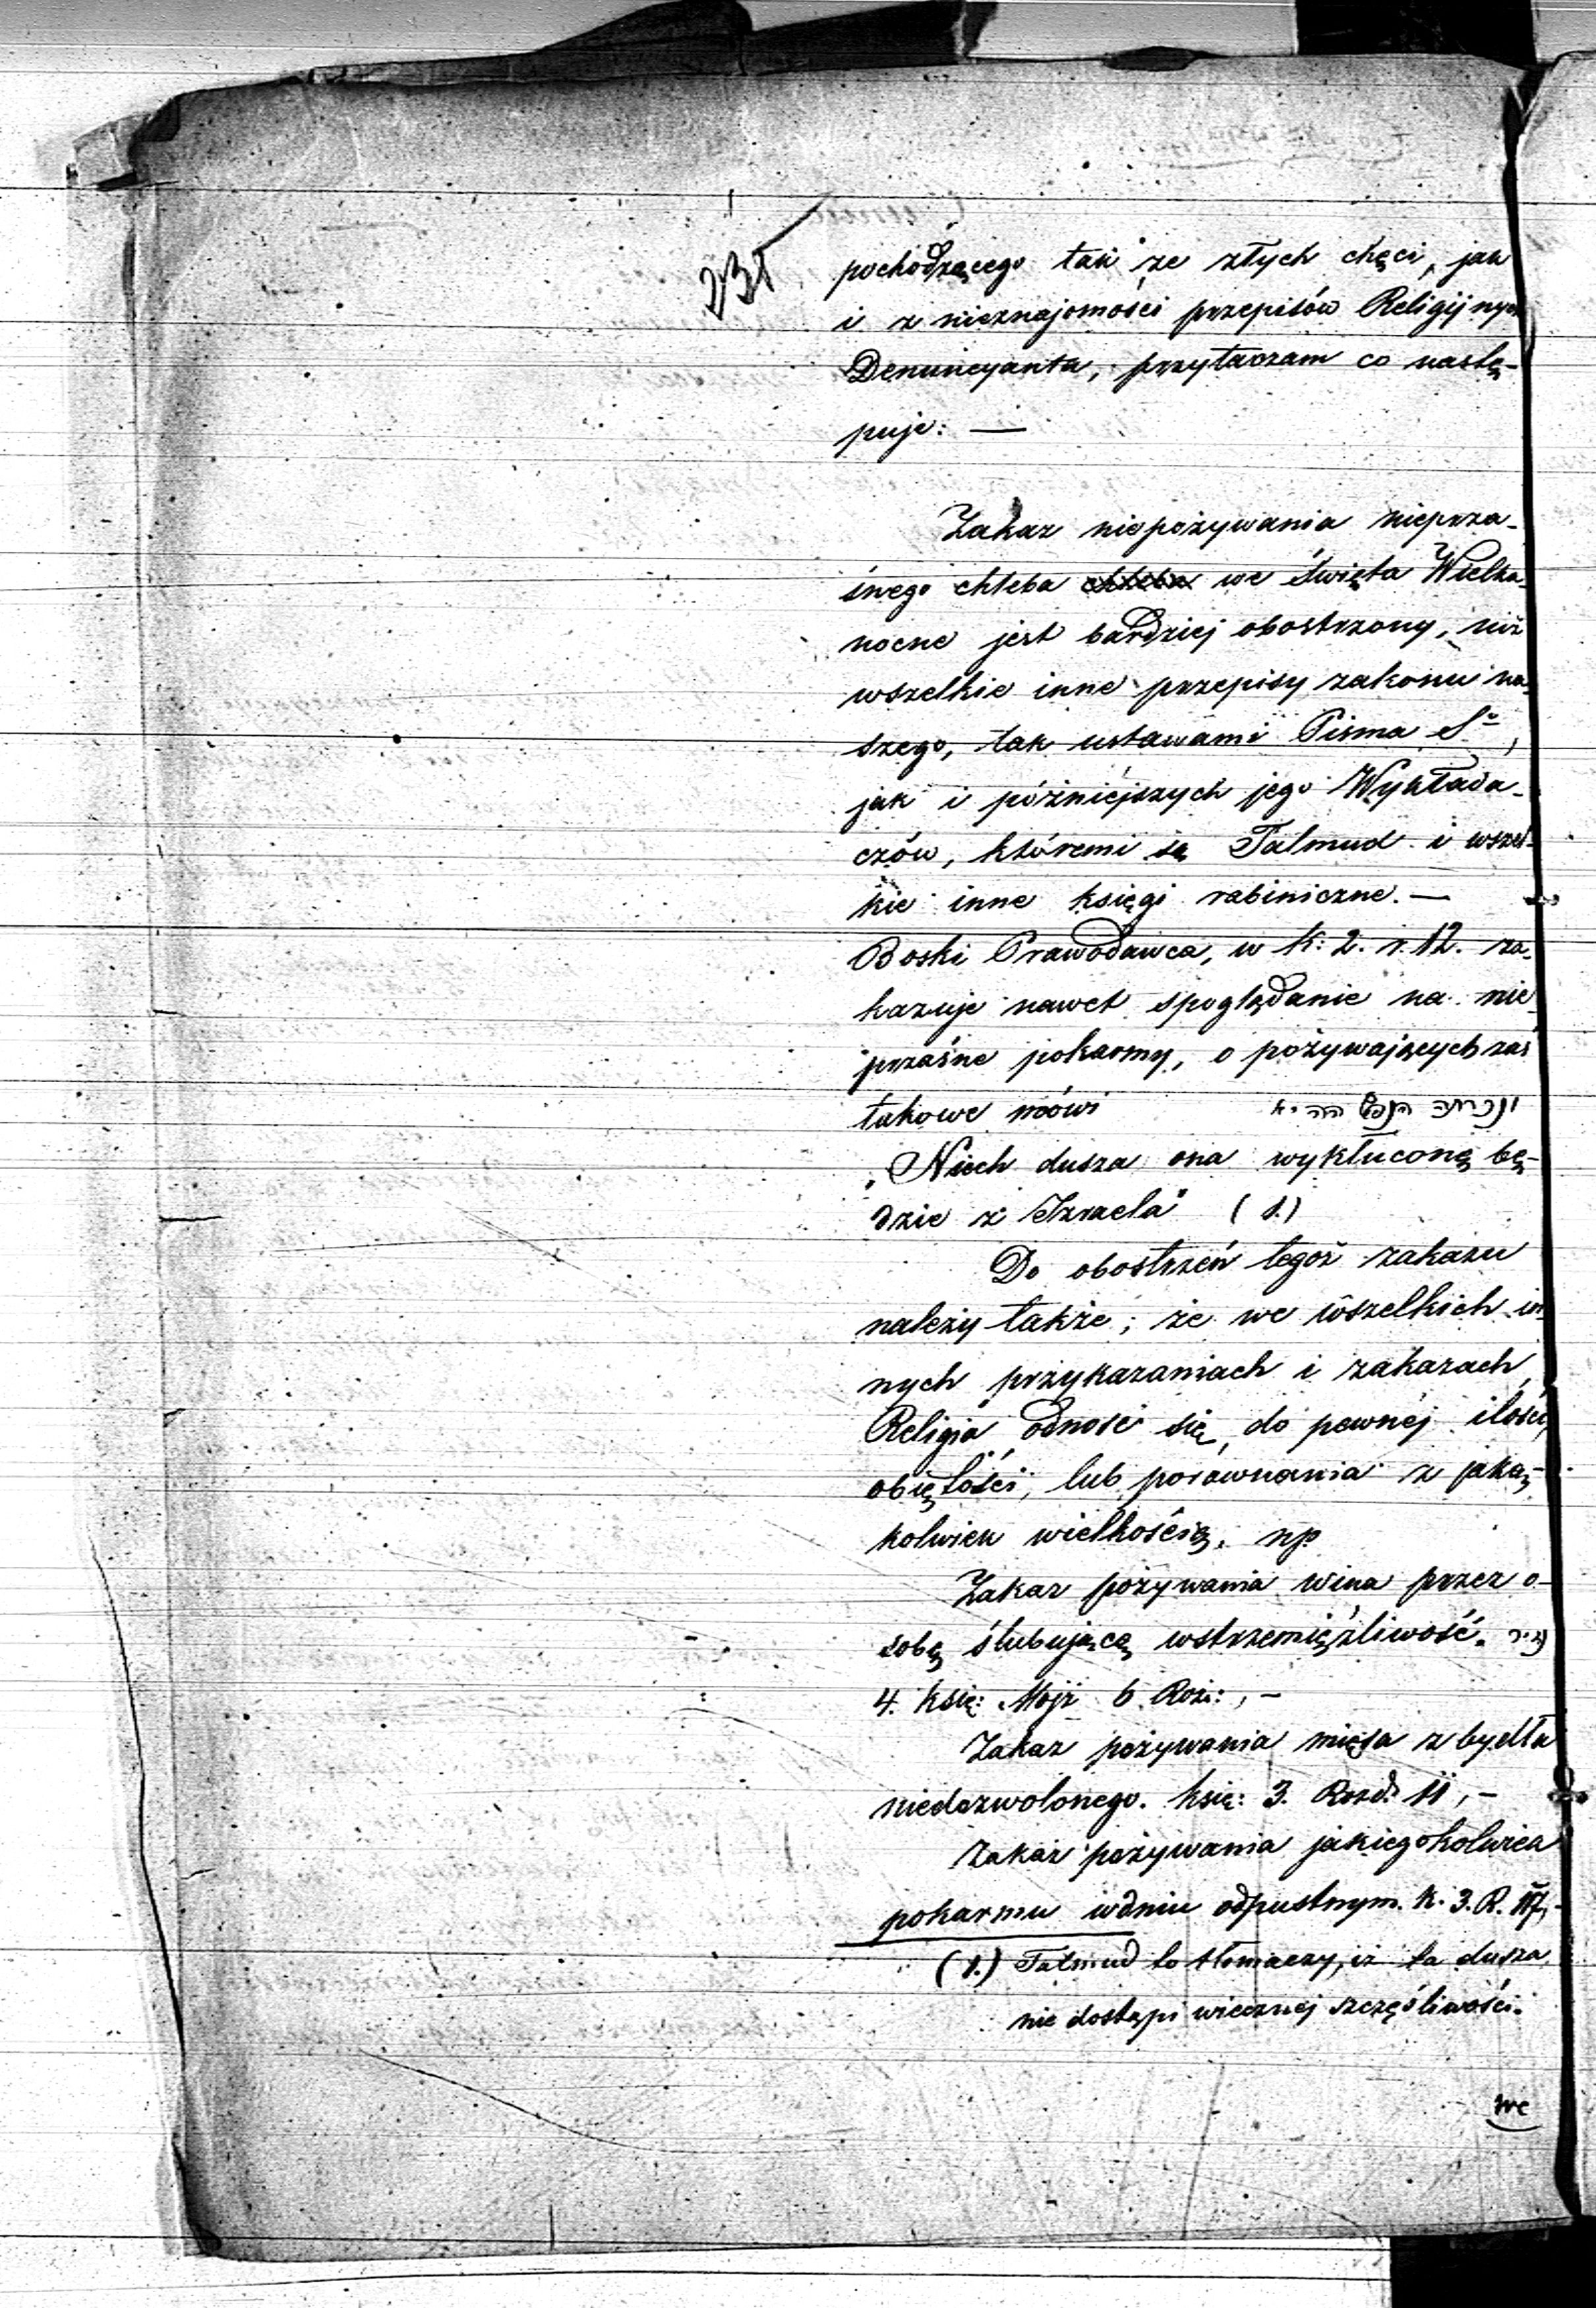 231
pochodzącego tak ze złych chęci, jak
i z nieznajomości przepisów Religijnych
Denuncyanta, przytaczam co nastę-
puje: —
Zakaz niepożywania nieprza-
śnego chleba chleba we święta Wielka-
nocne jest bardziej obostrzony, niż
wszelkie inne przepisy zakonu na-
szego, tak ustawami Pisma Sº,
jak i późniejszych jego Wykłada-
czów, któremi są Talmud i wszel-
kie inne księgi rabiniczne. —
Boski Prawodawca, w K: 2. r. 12. za-
kazuje nawet spoglądanie na nie-
przaśne pokarmy, o pożywających zaś
takowe mówi ונכרתה הנפש ההיא
„Niech dusza ona wykłuconą bę-
dzie z Izraela" (1.)
Do obostrzeń tegoż zakazu
należy także; że we wszelkich in-
nych przykazaniach i zakazach,
Religia odnosi się do pewnéj ilości,
obiętości, lub porównania z jaką-
kolwiek wielkością, np
Zakaz pożywania wina przez o-
sobę ślubującą wstrzemięźliwość. נזיר
4. księ: Mojż 6 Roz:, —
Zakaz pożywania mięsa z bydła
niedozwolonego. księ: 3. Rozd. 11, —
Zakaz pożywania jakiegokolwiek
pokarmu wdniu odpustnym. K. 3. R.
(1.) Talmud to tłomaczy, iż ta dusza
nie dostąpi wiecznej szczęśliwości.
we